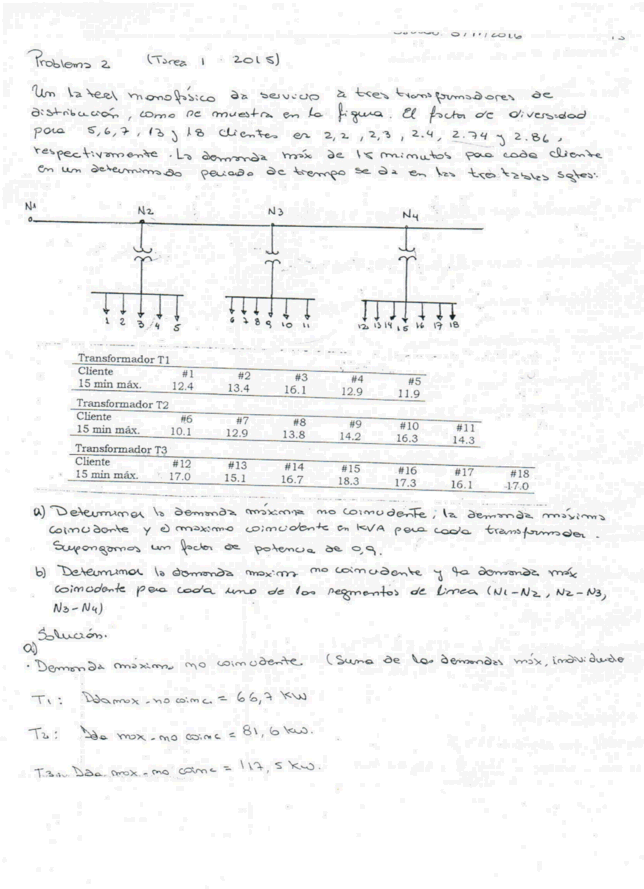 Problema 2 (Tarea 1 2015)
Un lateral monofásico da servicio a tres transformadores de
distribución, como se muestra en la figura. El factor de diversidad
para 5,6,7, 13 y 18 clientes es 2,2, 2,3, 2.4, 2.74 y 2.86,
respectivamente. La demanda máx de 15 minutos para cada cliente
en un determinado periodo de tiempo se da en las tres tablas sgtes:
N1 N2 N3 N4
1 2 3 4 5 6 7 8 9 10 11 12 13 14 15 16 17 18
Transformador T1
Cliente #1 #2 #3 #4 #5
15 min máx. 12.4 13.4 16.1 12.9 11.9
Transformador T2
Cliente #6 #7 #8 #9 #10 #11
15 min máx. 10.1 12.9 13.8 14.2 16.3 14.3
Transformador T3
Cliente #12 #13 #14 #15 #16 #17 #18
15 min máx. 17.0 15.1 16.7 18.3 17.3 16.1 17.0
a) Determinar la demanda máxima no coincidente, la demanda máxima
coincidente y el maximo coincidente en KVA para cada transformador.
Supongamos un factor de potencia de 0,9.
b) Determinar la demanda maxima no coincidente y la demanda máx
coincidente para cada uno de los segmentos de linea (N1-N2, N2-N3,
N3-N4)
Solución.
a)
· Demanda máxima no coincidente. (Suma de las demandas máx, individuale
T1: Dda max - no coinc. = 66,7 kW
T2: Dda max - no coinc = 81,6 kW.
T3: Dda max - no coinc = 117,5 kW.